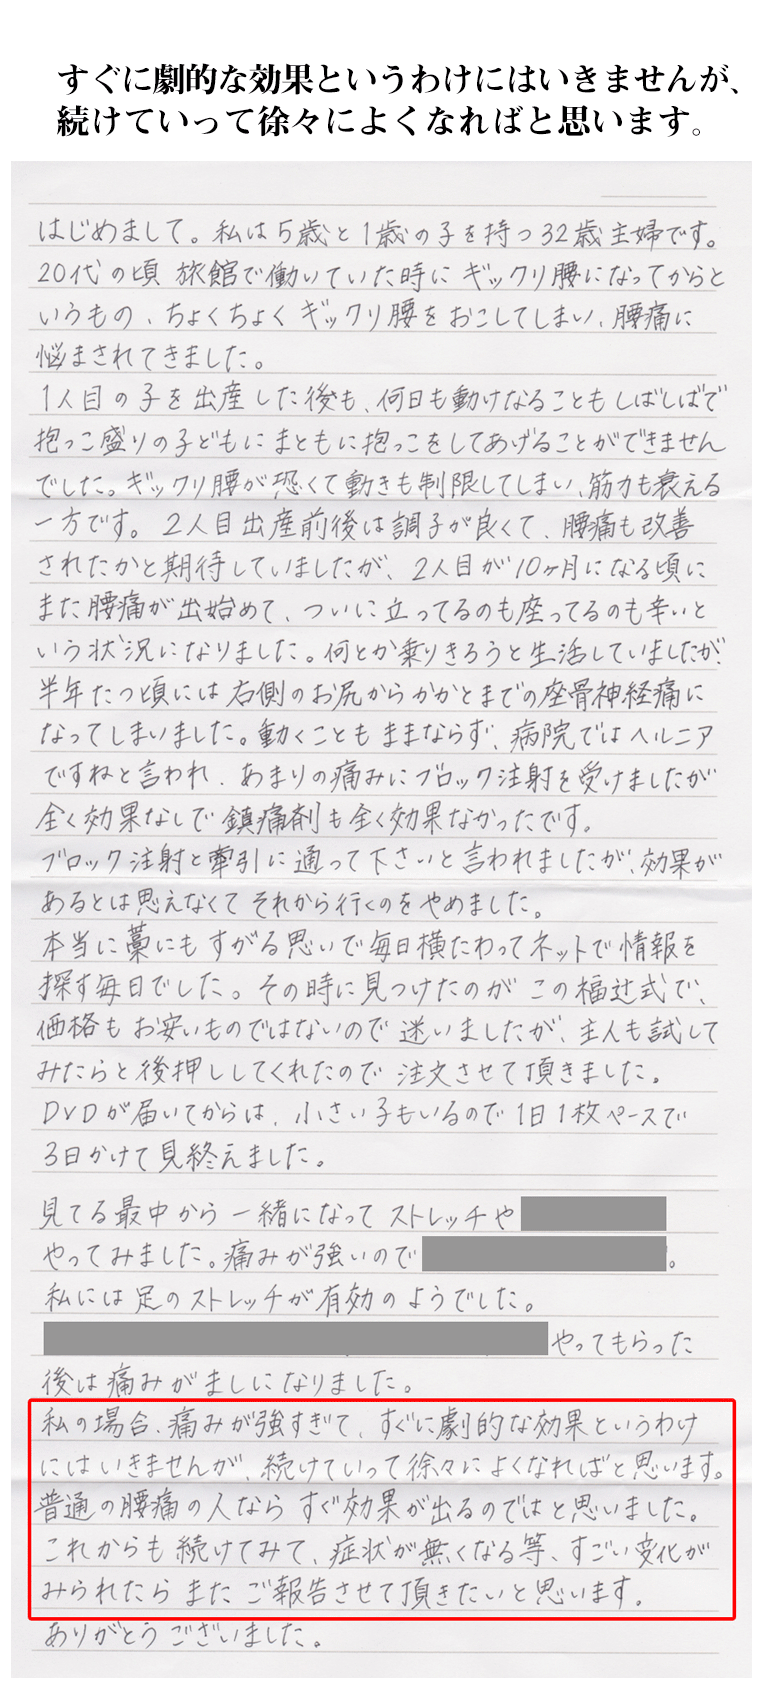 すぐに劇的な効果というわけにはいきませんが、
続けていって徐々によくなればと思います。
はじめまして。私は5歳と1歳の子を持つ32歳主婦です。
20代の頃 旅館で働いていた時に ギックリ腰になってからと
いうもの、ちょくちょく ギックリ腰を おこしてしまい、腰痛に
悩まされてきました。
1人目の子を出産した後も、何日も動けなることもしばしばで
抱っこ盛りの子どもに まともに抱っこをしてあげることができません
でした。ギックリ腰が恐くて動きも制限してしまい、筋力も衰える
一方です。2人目出産前後は調子が良くて、腰痛も改善
されたかと期待していましたが、2人目が10ヶ月になる頃に
また腰痛が出始めて、ついに立ってるのも座ってるのも辛いと
いう状況になりました。何とか乗りきろうと生活していましたが、
半年たつ頃には右側のお尻からかかとまでの座骨神経痛に
なってしまいました。動くこともままならず、病院ではヘルニア
ですねと言われ、あまりの痛みにブロック注射を受けましたが
全く効果なしで鎮痛剤も全く効果なかったです。
ブロック注射と牽引に通って下さいと言われましたが、効果が
あるとは思えなくて それから行くのをやめました。
本当に藁にもすがる思いで毎日横たわってネットで情報を
探す毎日でした。その時に見つけたのが この福辻式で、
価格もお安いものではないので迷いましたが、主人も試して
みたらと後押ししてくれたので 注文させて頂きました。
DVDが届いてからは、小さい子もいるので1日1枚ペースで
3日かけて見終えました。
見てる最中から一緒になって ストレッチや
やってみました。痛みが強いので 。
私には足のストレッチが有効のようでした。
やってもらった
後は痛みがましになりました。
私の場合、痛みが強すぎて、すぐに劇的な効果というわけ
にはいきませんが、続けていって徐々によくなればと思います。
普通の腰痛の人なら すぐ効果が出るのではと思いました。
これからも続けてみて、症状が無くなる等、すごい変化が
みられたら また ご報告させて頂きたいと思います。
ありがとうございました。